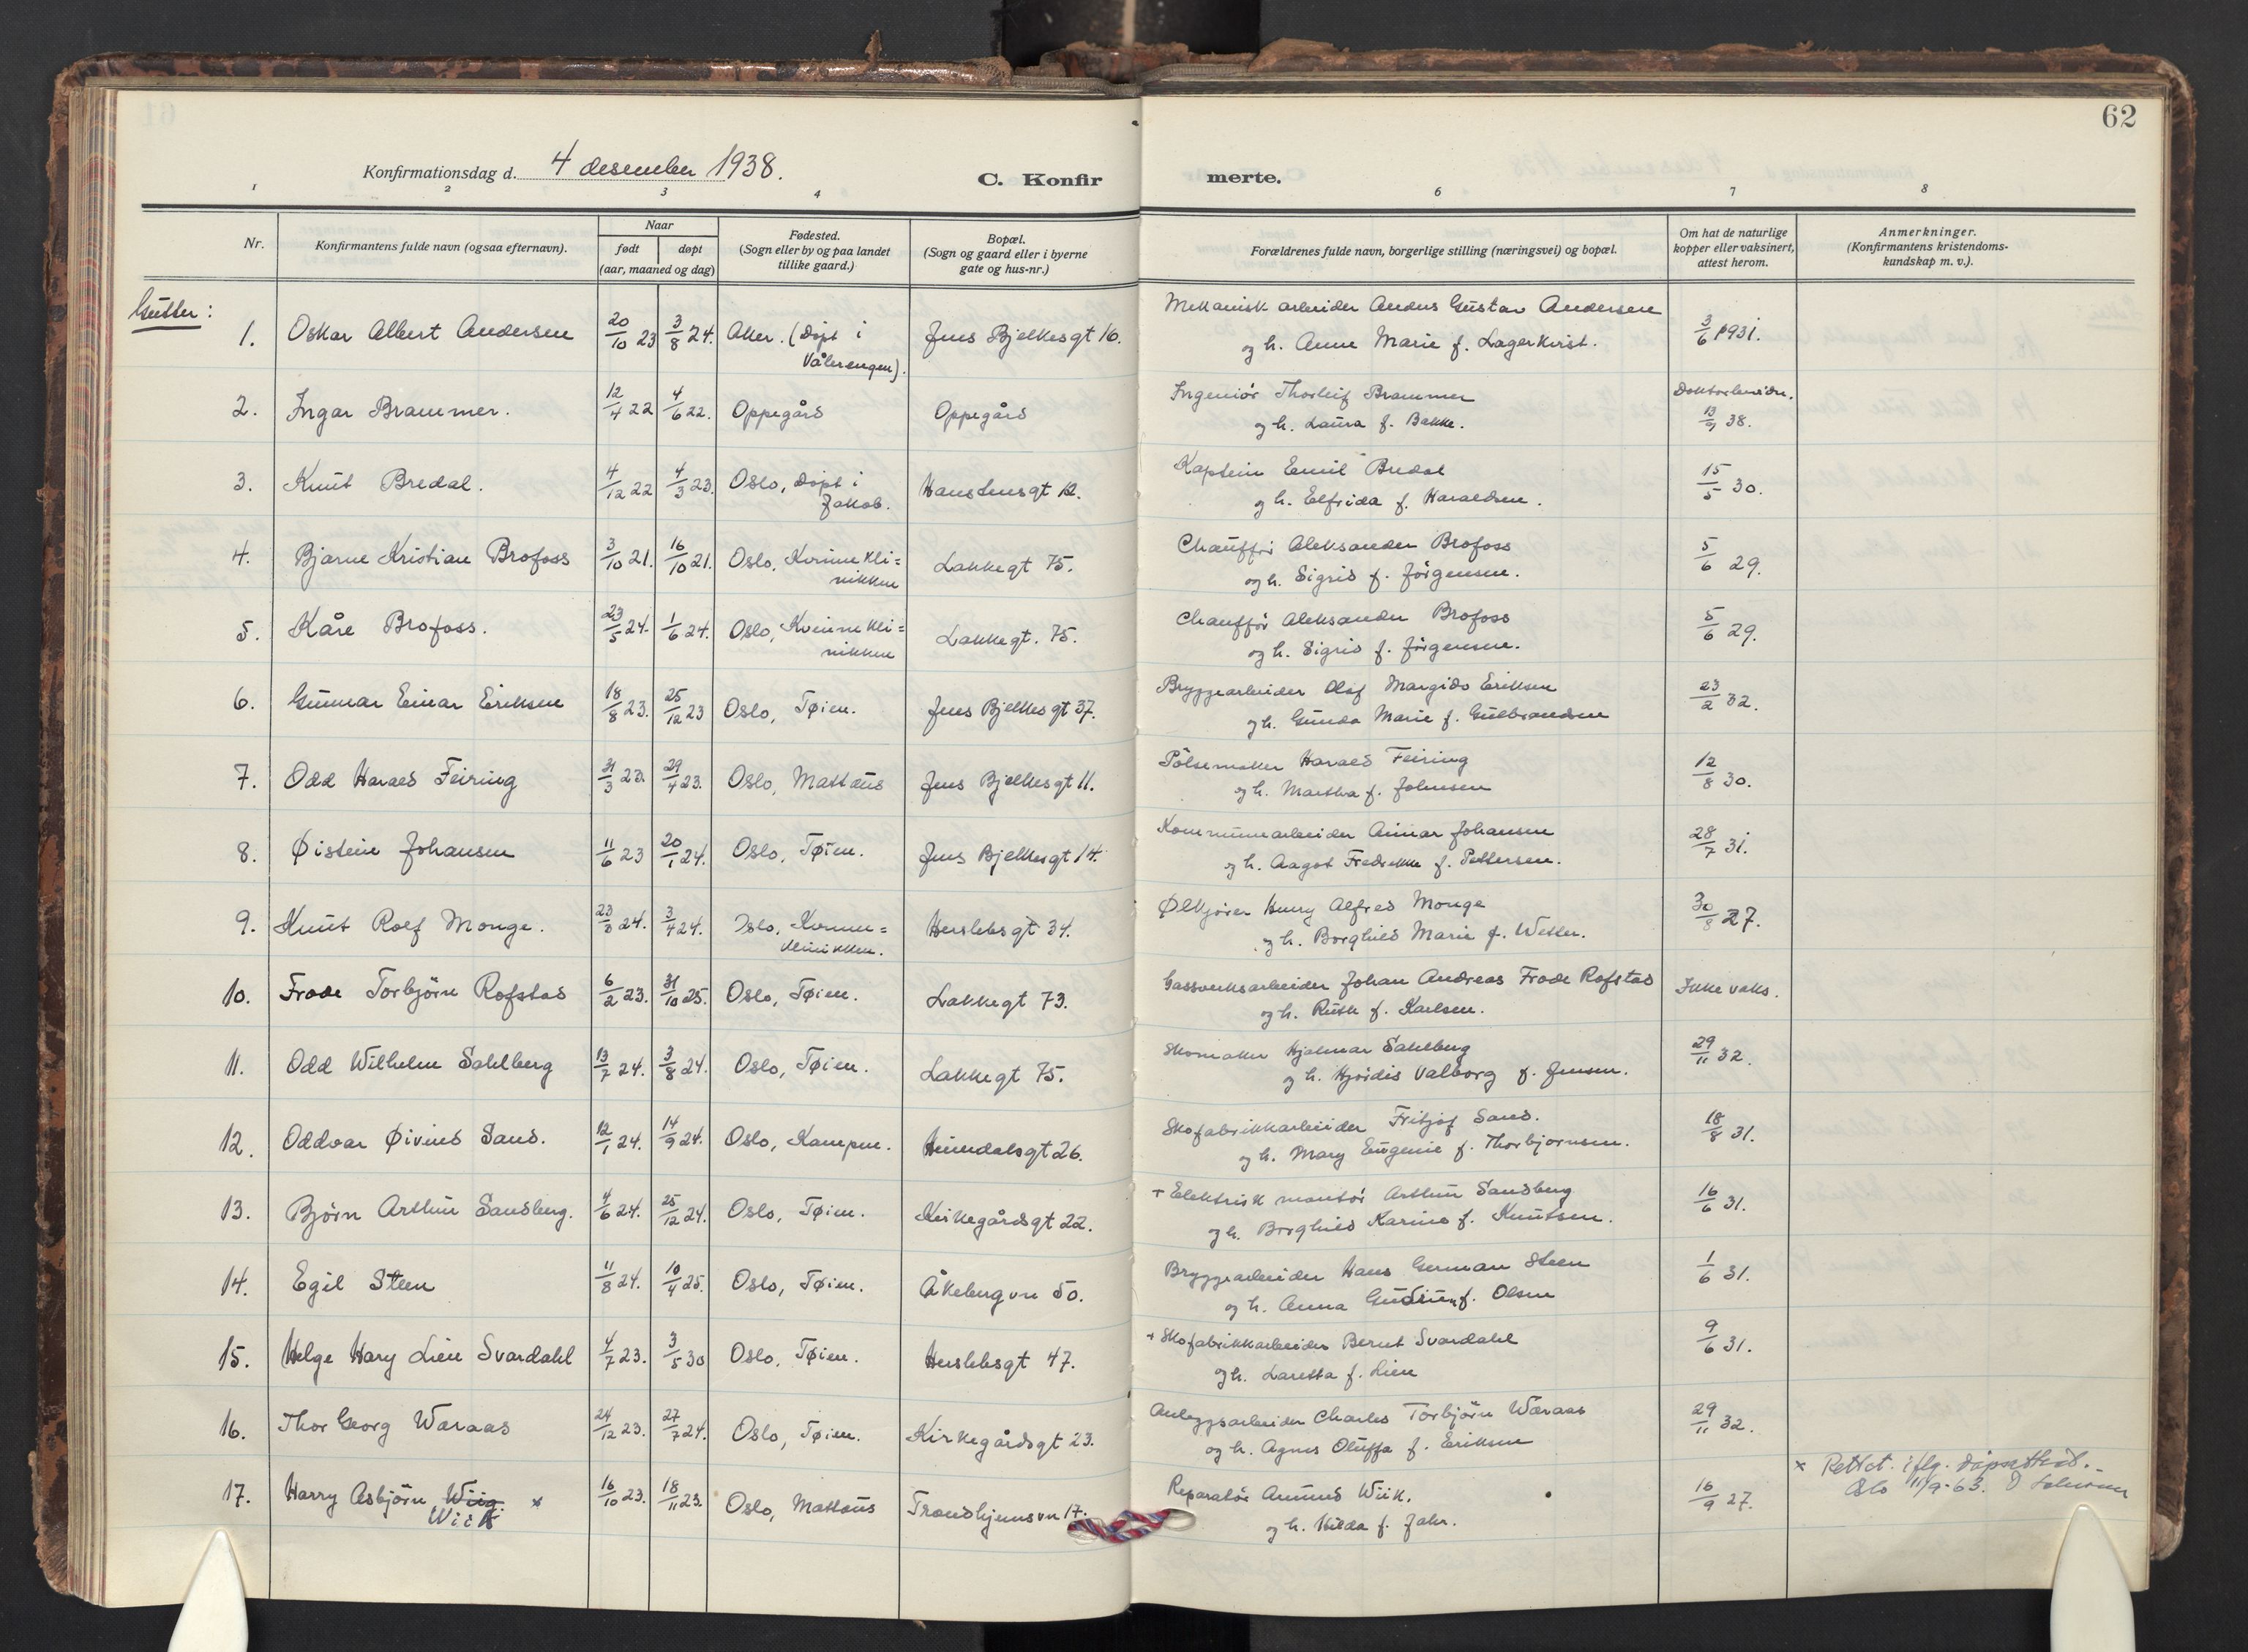 62
Konfirmationsdag d. 4 desember 1938.
C. Konfir merte.
1 2 3 4 6 7 8
Nr.
Konfirmantens fulde navn (ogsaa efternavn).
Naar
født
døpt
(aar, maaned og dag)
Fødested.
(Sogn eller by og paa landet
tillike gaard.)
Bopæl.
(Sogn og gaard eller i byerne
gate og hus-nr.)
Forældrenes fulde navn, borgerlige stilling (næringsvei) og bopæl.
Om hat de naturlige
kopper eller vaksinert,
attest herom.
Anmerkninger.
(Konfirmantens kristendoms-
kundskap m. v.).
Gutter:
1. Oskar Albert Andersen 20/10 23 3/8 24. Aker. (Døpt i Jens Bjelkesgt 16. Mekanisk arbeider Anders Gustav Andersen 3/6 1931.
Vålerengen). og h. Anne Marie f. Lagerkvist.
2. Ingar Brammer. 12/4 22 4/6 22. Oppegård Oppegård Ingeniør Thorleif Brammer
og h. Laura f. Bakke. 13/9 38.
3. Knut Bredal. 4/12 22 4/3 23. Oslo, døpt i Kaptein Emil Bredal 15/5 30.
Jakob. og h. Elfrida f. Haraldsen.
4. Bjarne Kristian Brofoss 3/10 21. 16/10 21. Oslo, Kvinnekli= Lakkegt 75. Chauffør Aleksander Brofoss 5/6 29.
nikken og h. Sigrid f. Jörgensen.
5. Kåre Brofoss. 23/5 24. 1/6 24. Oslo, Kvinnekli= Lakkegt. 75. Chauffør Aleksander Brofoss 5/6 29.
nikken og h. Sigrid f. Jörgensen.
6. Gunnar Einar Eriksen 18/8 23. 25/12 23 Oslo, Tøien. Jens Bjelkesgt 37. Bryggearbeider Olaf Margido Eriksen 23/2 32.
og h. Gunda Marie f. Gulbrandsen
7. Odd Harald Feiring 31/3 23. 29/4 23. Oslo, Mattæus Jens Bjelkesgt 11. Pölsemaker Harald Feiring 12/8 30.
og h. Martha f. Johnsen
8. Øistein Johansen 11/6 23 20/1 24. Oslo, Tøien. Jens Bjelkesgt 14. Kommunearbeider Johansen 28/7 31.
og h. Aagot Fredrikke f. Pettersen.
9. Knut Rolf Monge. 23/3 24. 3/4 24. Oslo, Kvinne= Herslebsgt 34. Ølkjører Henry Alfred Monge 30/8 27.
klinikken. og h. Borghild Marie f. Wetler.
10. Frode Torbjörn Rofstad 6/2 23. 31/10 25. Oslo, Tøien. Lakkegt 73. Gassverksarbeider Johan Andreas Frode Rofstad Ikke vaks.
og h. Ruth f. Karlsen.
11. Odd Wilhelm Sahlberg 13/7 24. 3/8 24. Oslo, Tøien. Lakkegt 75. Skomaker Hjalmar Sahlberg 29/11 32.
og h. Hjördis Valborg f. Jensen.
12. Oddvar Øivind Sand. 12/1 24. 14/9 24. Oslo, Kampen. Heimdalsgt 26. Skofabrikkarbeider Fritjof Sand. 18/8 31.
og h. Mary Eugenie f. Thorbjørnsen.
13. Björn Arthur Sandberg. 4/6 24. 25/12 24. Oslo, Tøien. Kirkegårdsgt 22. + Elektrisk montör Arthur Sandberg 16/6 31.
og h. Borghild Karino f. Knutsen.
14. Egil Steen 11/8 24. 10/4 25. Oslo, Tøien. Åkebergvn 50. Bryggearbeider Hans German Steen 1/6 31.
og h. Anna Gudrun f. Olsen
15. Helge Hary Lien Svardahl 4/7 23. 3/5 30 Oslo, Tøien. Herslebsgt 47. + Skofabrikkarbeider Bernt Svardahl 9/6 31.
og h. Laretta f. Lien
16. Thor Georg Wæraas 24/12 23. 27/7 24. Oslo, Tøien. Kirkegårdsgt 23. Anleggsarbeider Charles Torbjörn Wæraas 29/11 32.
og h. Agnes Oluffa f. Eriksen
17. Harry Asbjörn Wiig x 16/10 23. 18/11 23. Oslo, Mattæus Trondhjemsvn 17. Reparatör Amund Wiik. 16/9 27. x Rettet iflg. dåpsattest.
Wiik og h. Hilda f. Jahr. Oslo 11/9-63.